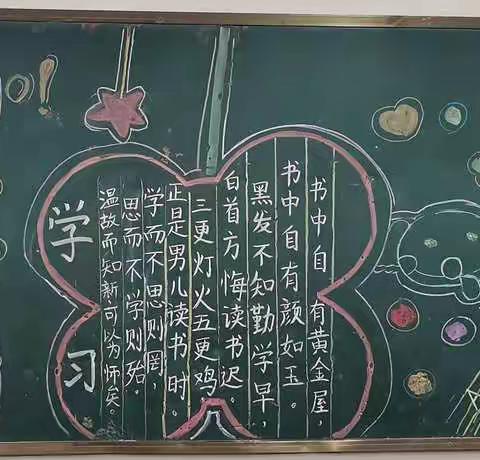 学习
书中自有黄金屋，
书中自有颜如玉。
黑发不知勤学早，
白首方悔读书迟。
三更灯火五更鸡，
正是男儿读书时。
学而不思则罔，
思而不学则殆。
温故而知新可以为师矣。